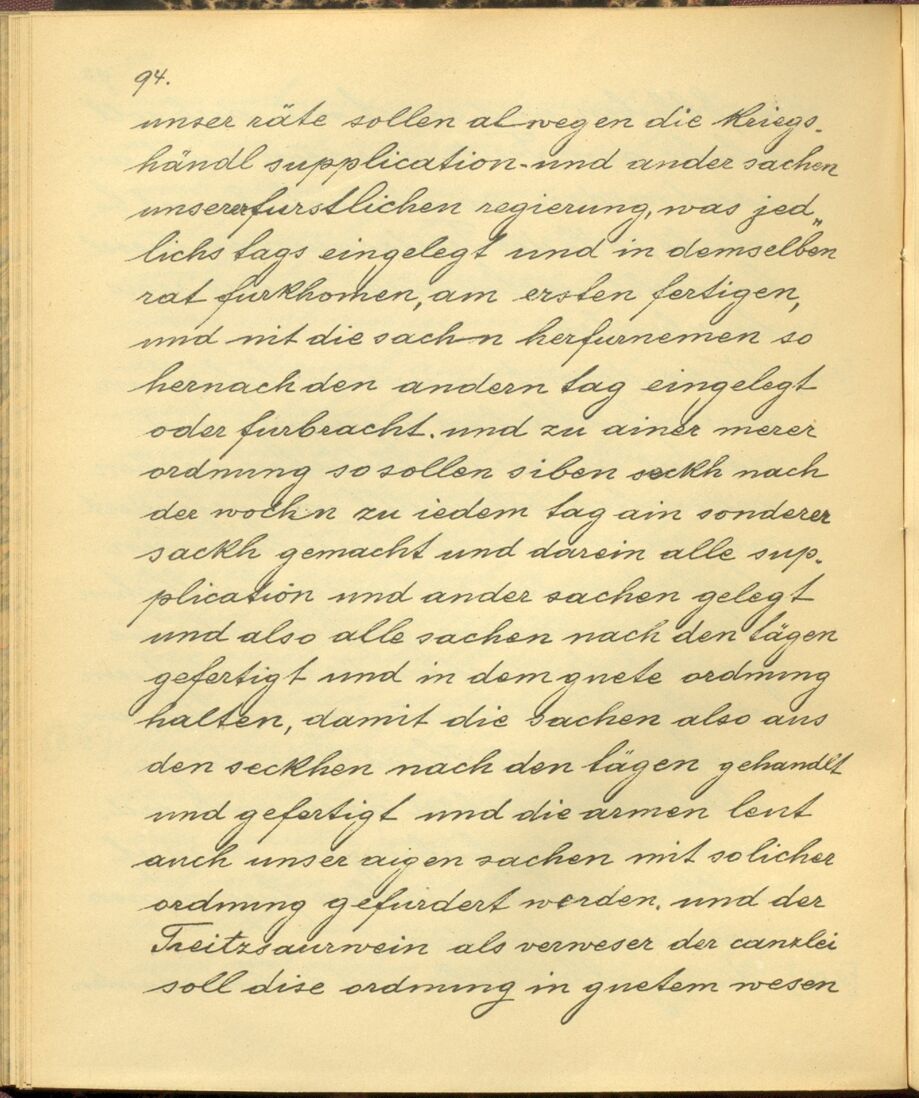 94.
unser räte sollen alwegen die kriegs-
händl supplication- und ander sachen
unserer furstlichen regierung, was jed„
lichs tags eingelegt und in demselben
rat furkhomen, am ersten fertigen,
und nit die sachn herfurnemen so
hernach den andern tag eingelegt
oder furbracht. und zu ainer merer
ordnung so sollen siben seckh nach
der wochn zu iedem tag ain sonderer
sackh gemacht und darein alle sup-
plication und ander sachen gelegt
und also alle sachen nach den tägen
gefertigt und in dem guete ordnung
halten, damit die sachen also aus
den seckhen nach den tägen gehandlt
und gefertigt und die armen leut
auch unser aigen sachen mit solicher
ordnung gefurdert werden. und der
Treitzsaurwein als verweser der canzlei
soll dise ordnung in guetem wesen